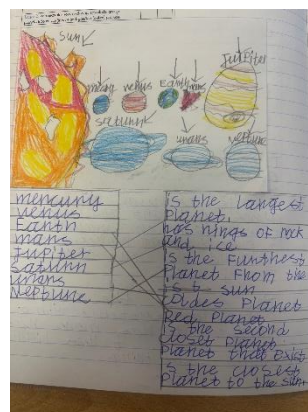 Sun
Jupiter
venus
Earth
mars
Saturn
uranus
neptune
mercury
venus
Earth
mars
Jupiter
Saturn
urans
Neptune
is the largest
Planet.
has rings of rock
and ice
is the furthest
Planet From the
sun
Coldes Planet
Red Planet
is the second
closet Planet
Planet that Exist
is the closest
Planet to the sun